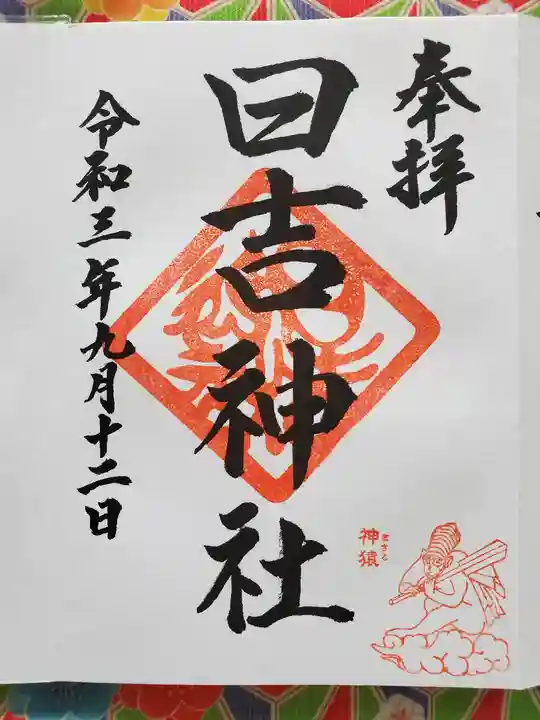 奉拝
日吉神社
神猿
まさる
令和三年九月十二日